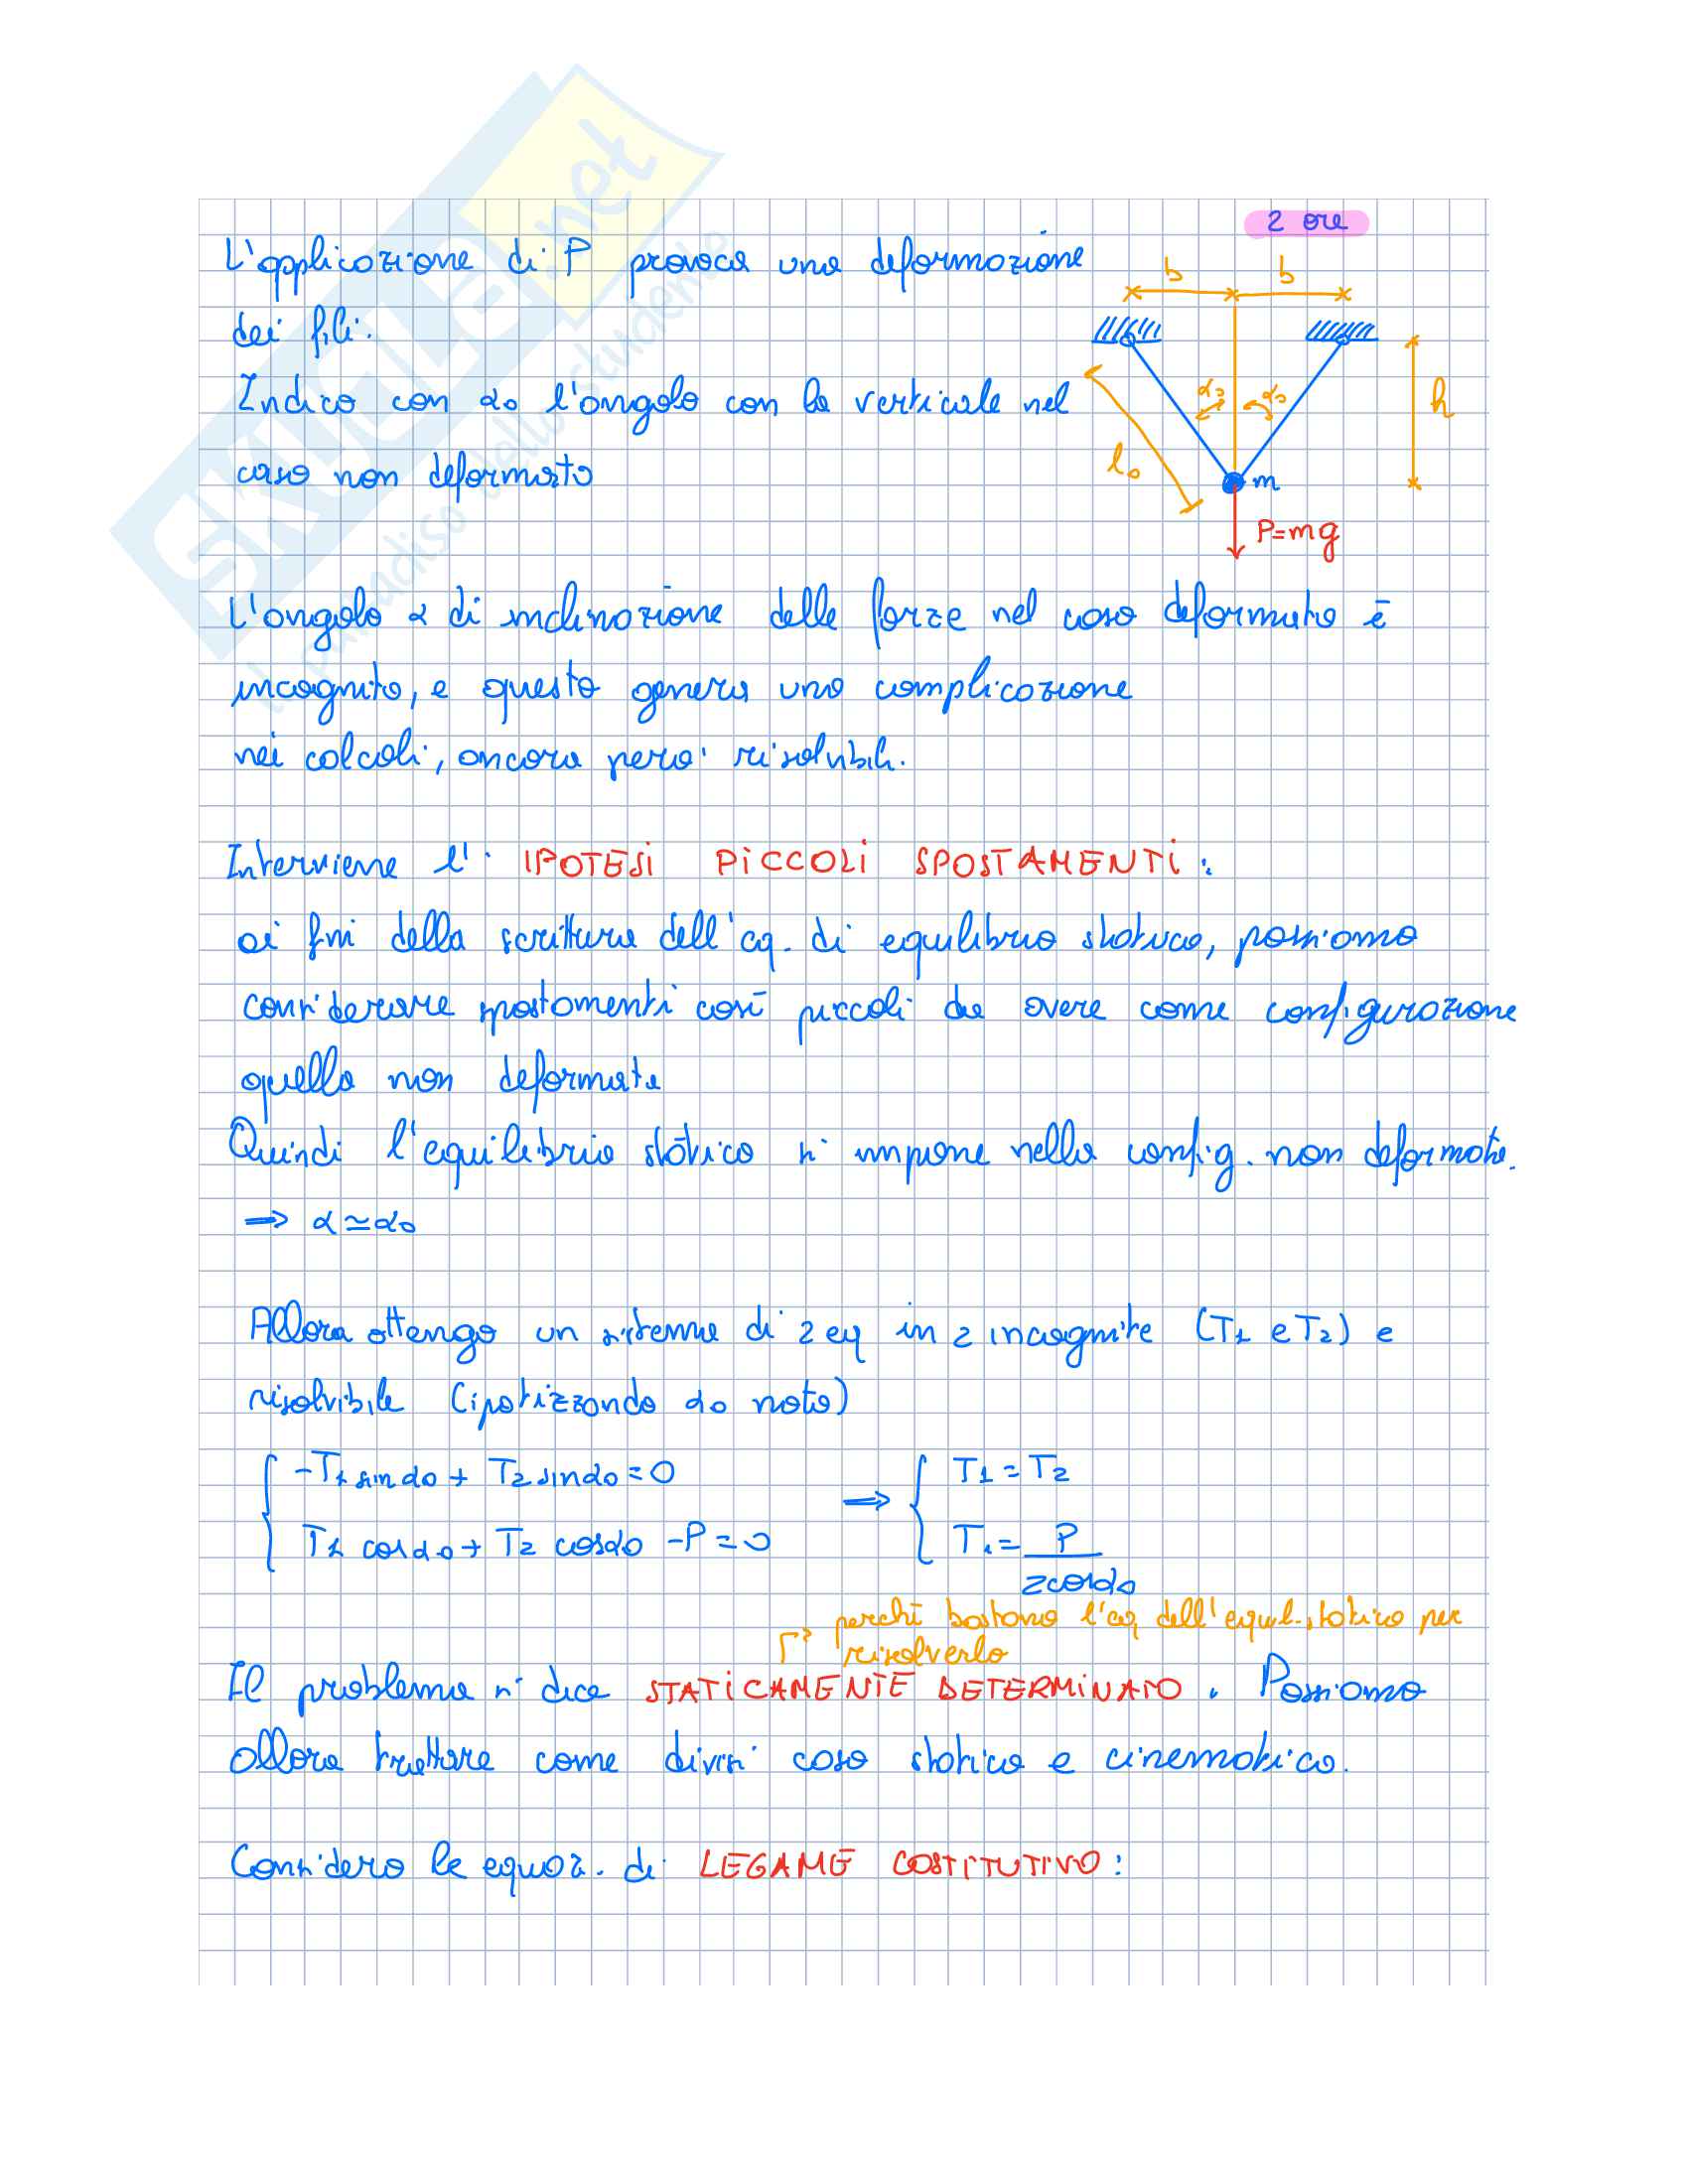 2 ore
L'applicazione di P provoca una deformazione
dei fili.
Indico con α₀ l'angolo con la verticale nel
caso non deformato
b b
α₀ α₀
h
l₀
m
P=mg
L'angolo α di inclinazione delle forze nel caso deformato è
incognito, e questo genera una complicazione
nei calcoli, ancora però risolvibili.
Interviene l' IPOTESI PICCOLI SPOSTAMENTI:
ai fini della scrittura dell'eq. di equilibrio statico, possiamo
considerare spostamenti così piccoli da avere come configurazione
quella non deformata
Quindi l'equilibrio statico si impone nella config. non deformata.
⇒ α≃α₀
Allora ottengo un sistema di 2 eq in 2 incognite (T₁ e T₂) e
risolvibile (ipotizzando α₀ noto)
{ -T₁ sinα₀ + T₂ sinα₀ = 0 ⇒ { T₁ = T₂
T₁ cosα₀ + T₂ cosα₀ - P = 0 T₁ = P / 2cosα₀
perché bastano l'eq dell'equil. statico per
risolverlo
Il problema si dice STATICAMENTE DETERMINATO. Possiamo
allora trattare come divisi caso statico e cinematico.
Considero le equaz. di LEGAME COSTITUTIVO:
SKUOLA.net
il paradiso dello studente